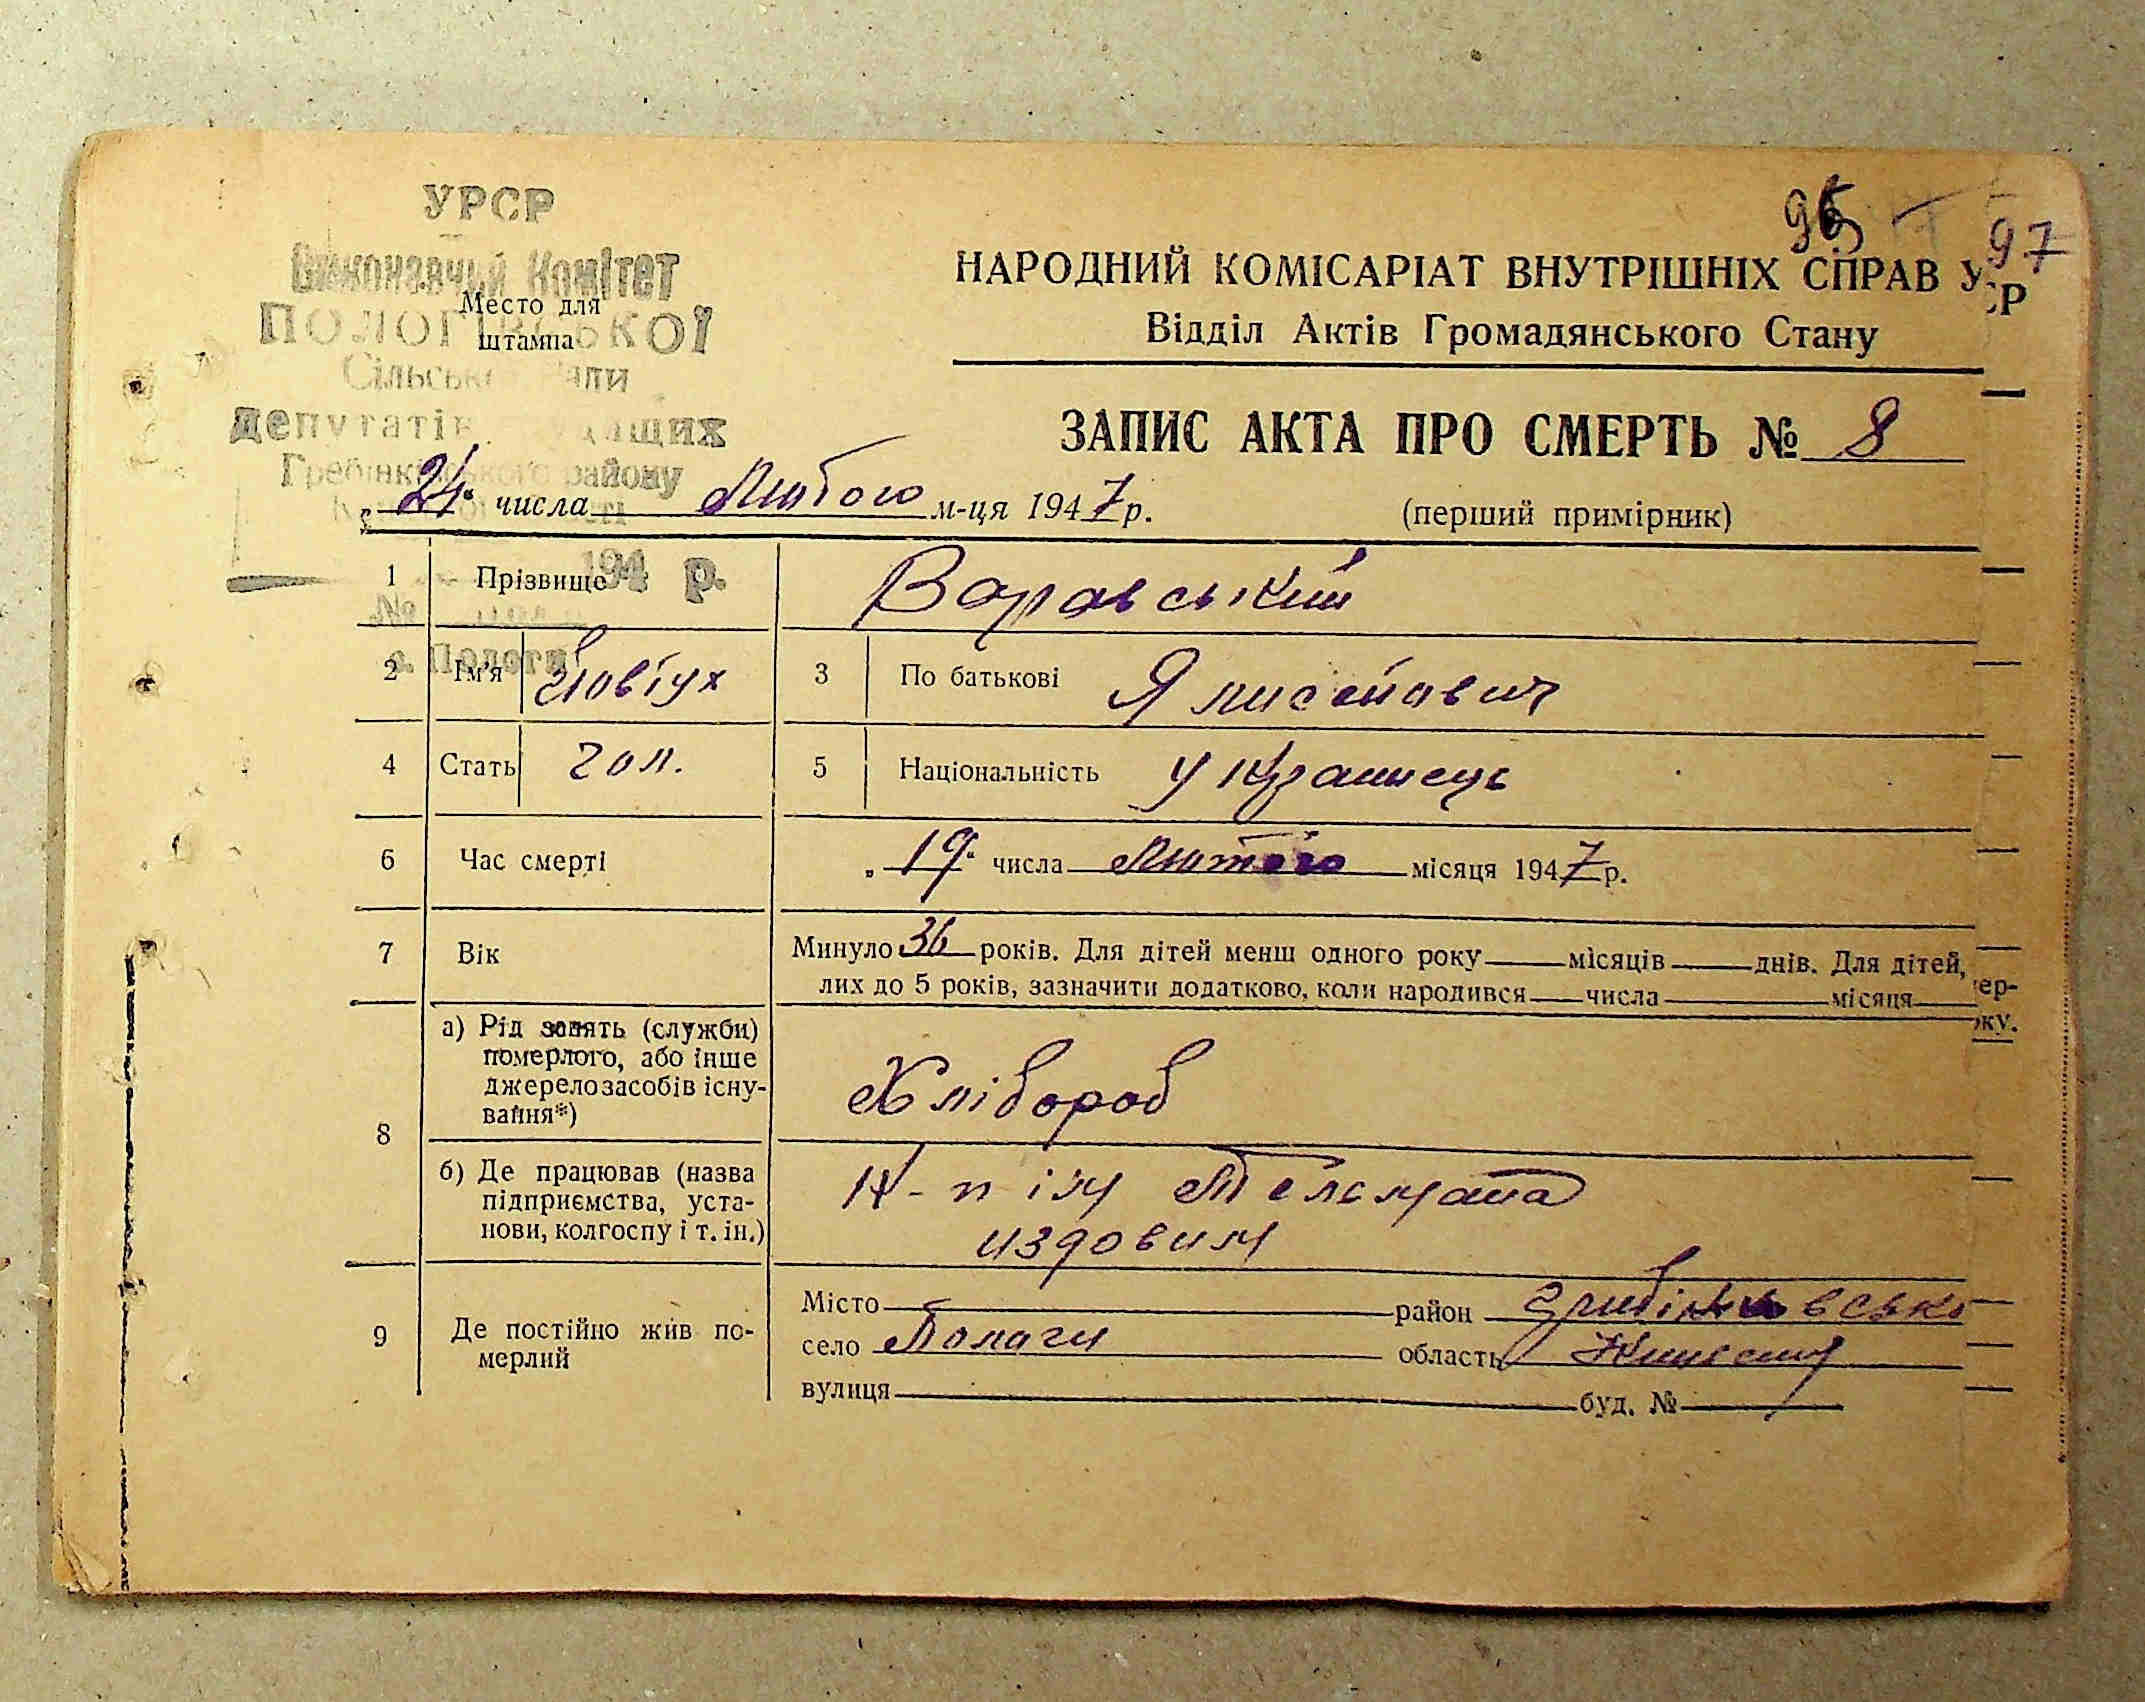 УРСР
Виконавчий Комітет
Место для
штампа
ПОЛОГІВСЬКОЇ
Сільської Ради
депутатів трудящих
Гребінківського району
96 97
НАРОДНИЙ КОМІСАРІАТ ВНУТРІШНІХ СПРАВ УСР
Відділ Актів Громадянського Стану
ЗАПИС АКТА ПРО СМЕРТЬ № 8
„24“ числа Лютого м-ця 1947 р. (перший примірник)
194 р.
№
с. Пологи
1 Прізвище Варавський
2 Ім'я 3 По батькові
4 Стать чол. 5 Національність Українець
6 Час смерті „19“ числа Лютого місяця 1947 р.
7 Вік Минуло 36 років. Для дітей менш одного року місяців днів. Для дітей, мер-
лих до 5 років, зазначити додатково, коли народився числа місяця року.
8 а) Рід занять (служби)
померлого, або інше
джерело засобів існу-
вання*) Хлібороб
б) Де працював (назва
підприємства, уста-
нови, колгоспу і т. ін.) К-п ім Тельмана
издовим
9 Де постійно жив по-
мерлий
Місто район Гребінківсько
село Пологи область Київська
вулиця буд. №